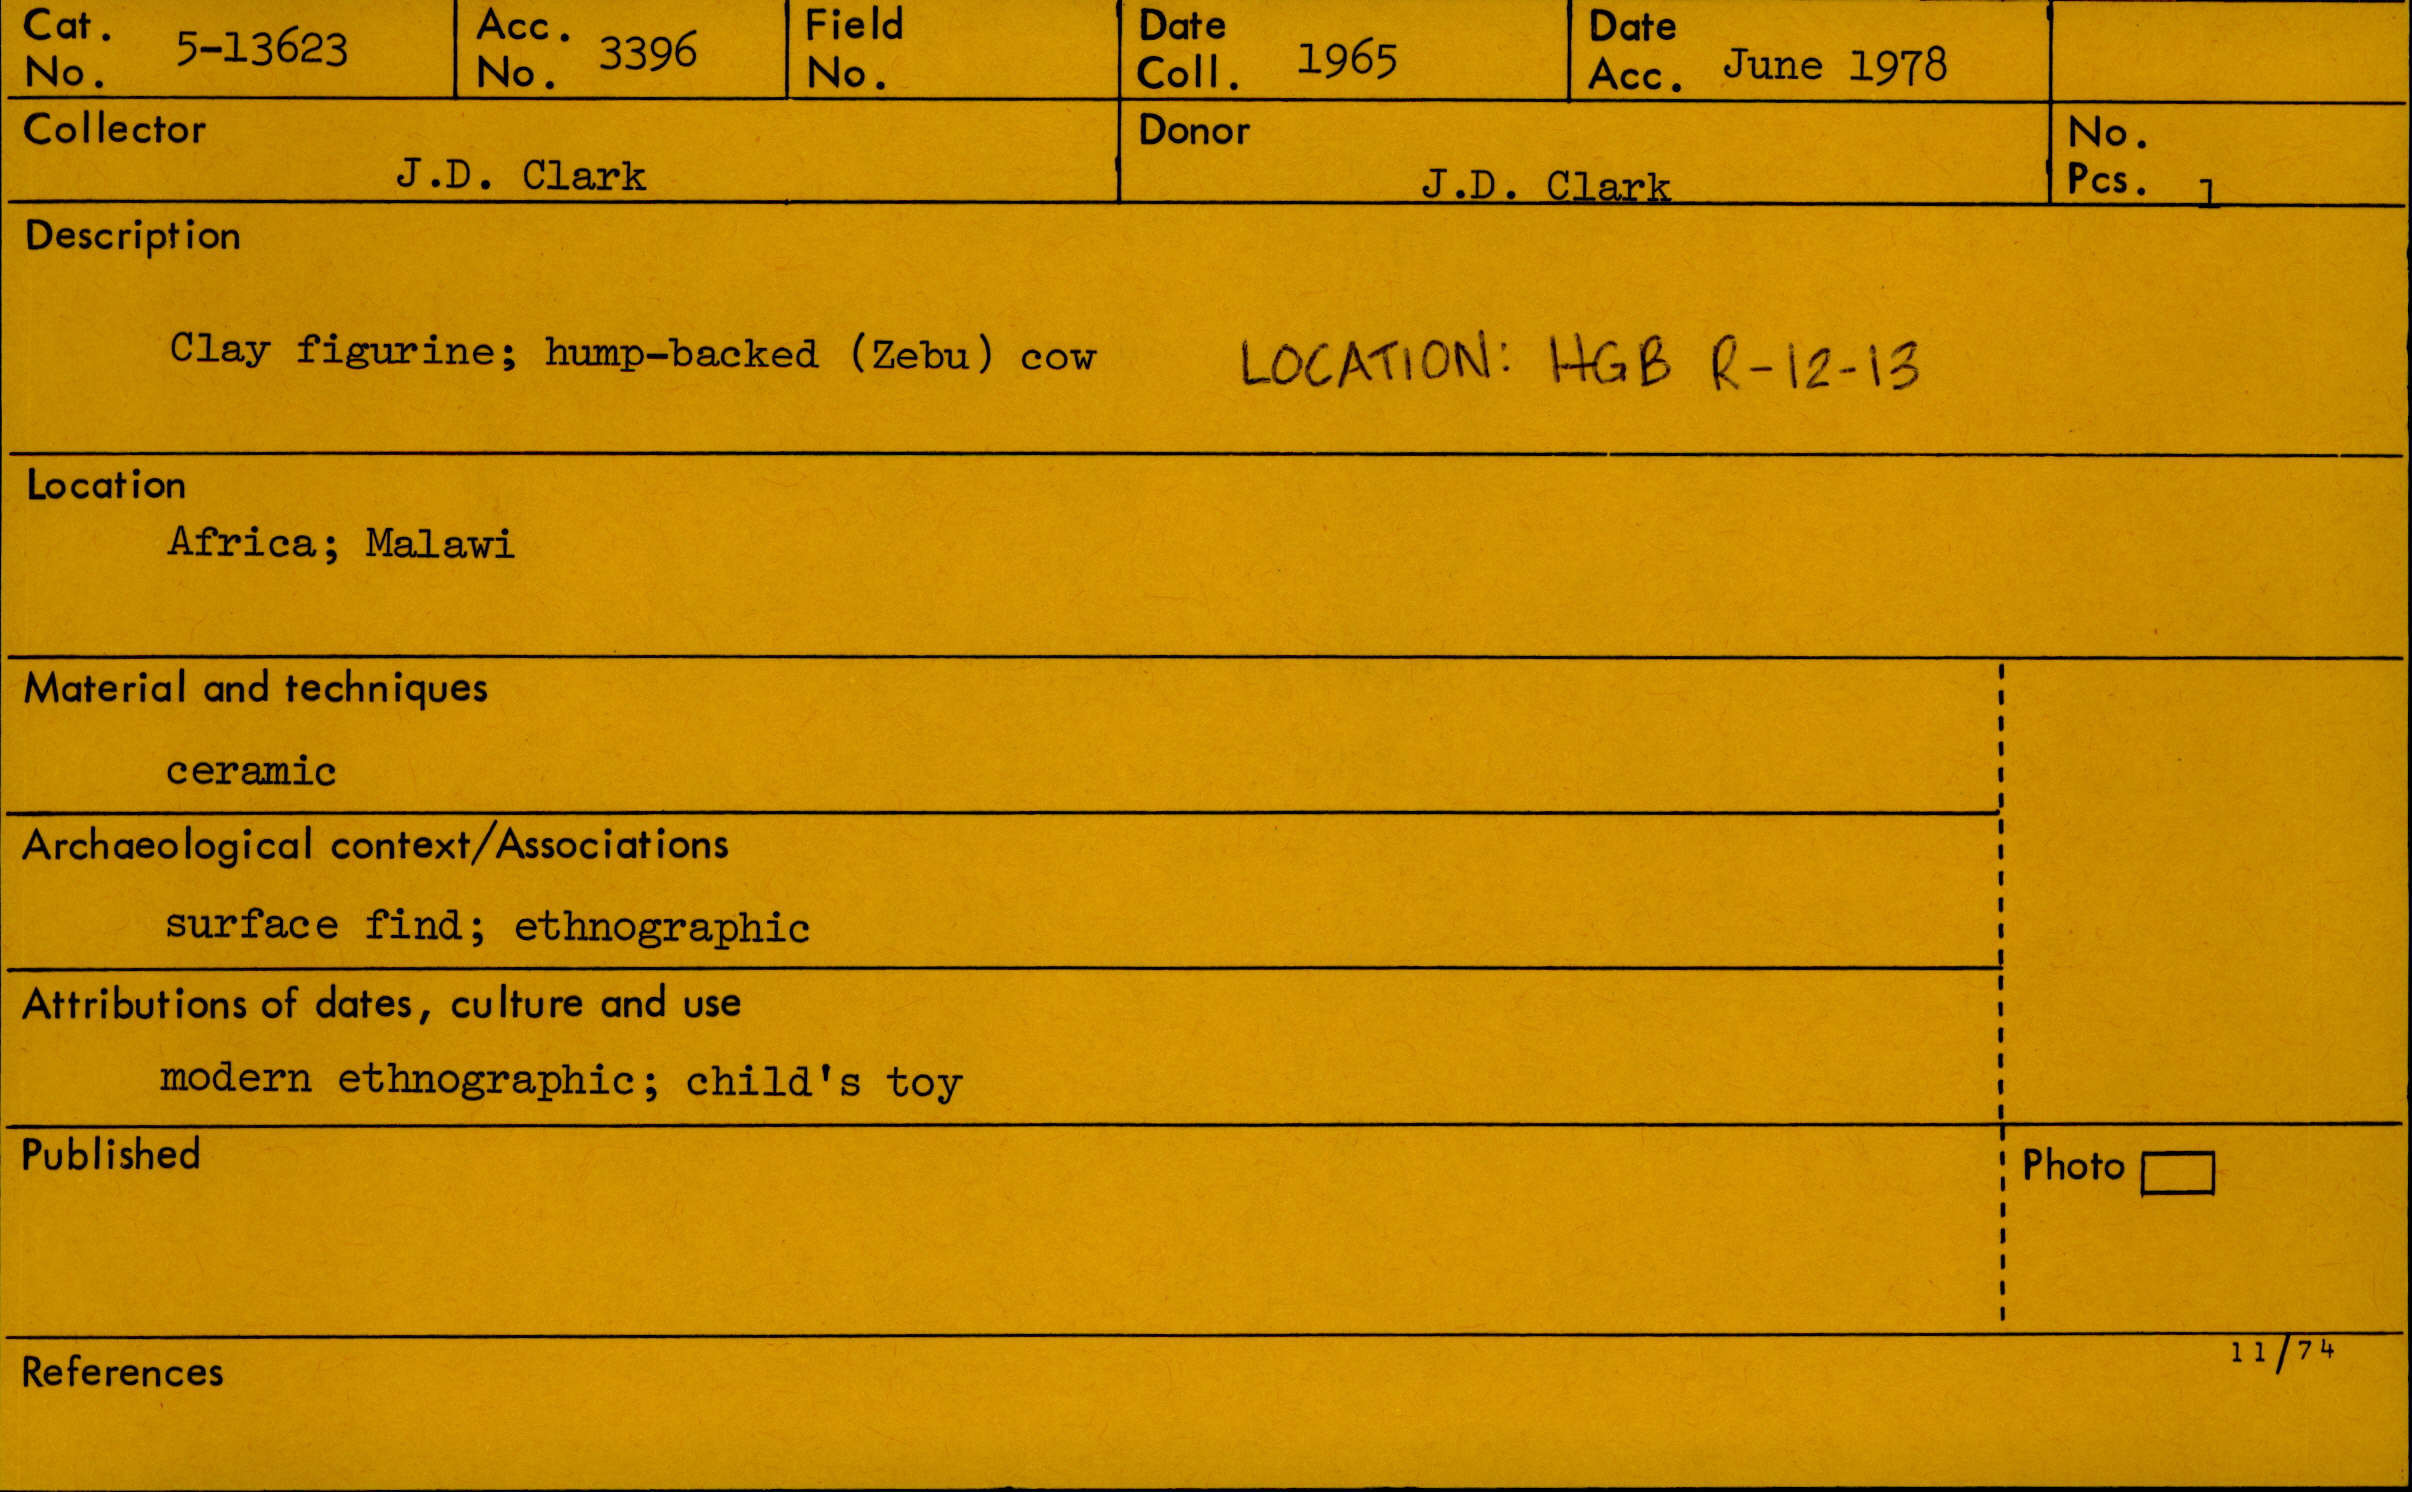 Cat. No. 5-13623
Acc. No. 3396
Field No.
Date Coll. 1965
Date Acc. June 1978
Collector
J.D. Clark
Donor
J.D. Clark
No. Pcs. 1
Description
Clay figurine; hump-backed (Zebu) cow LOCATION: HGB R-12-13
Location
Africa; Malawi
Material and techniques
ceramic
Archaeological context/Associations
surface find; ethnographic
Attributions of dates, culture and use
modern ethnographic; child's toy
Published
Photo
11/74
References